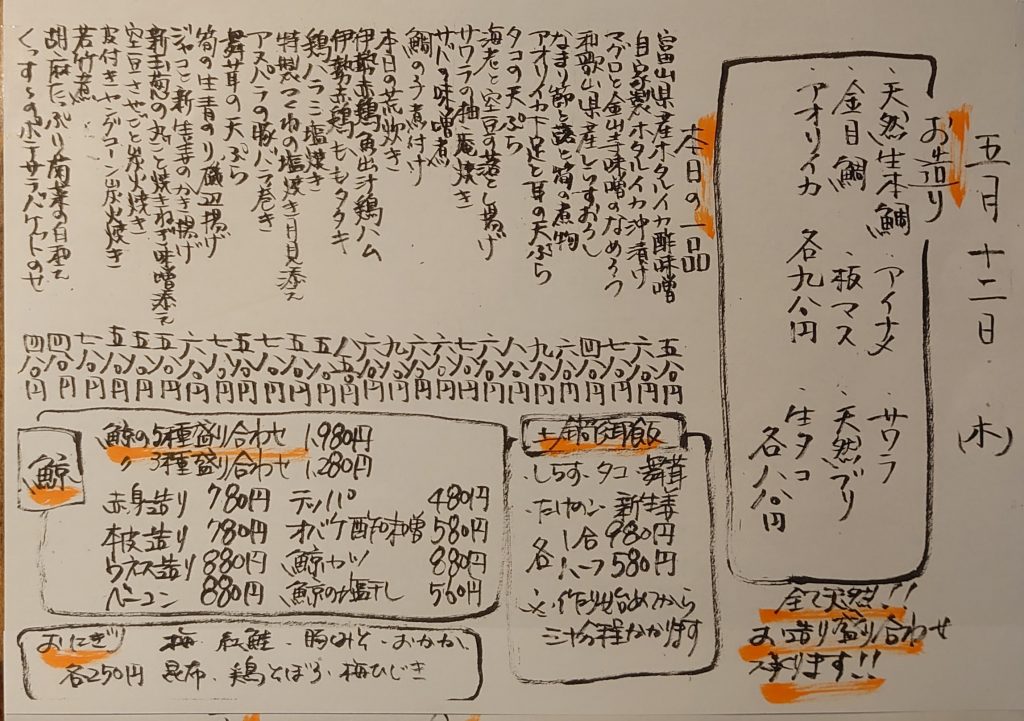 五月十二日(木)
お造り
・天然生本鯛 ・アイナメ ・サワラ
・金目鯛 ・板マス ・天然ブリ
・アオリイカ 生タコ
各九八〇円 各八八〇円
全て天然!!
お造り盛り合わせ
承ります!!
本日の一品
富山県産ホタルイカ酢味噌 五八〇円
自家製ホタルイカ沖漬け 六八〇円
マグロと金山寺味噌のなめろう 七八〇円
和歌山県産しらすおろし 四八〇円
なまり節と蕗と筍の煮物 六八〇円
アオリイカ下足と耳の天ぷら 九八〇円
タコの天ぷら 八八〇円
海老と空豆の落とし揚げ
サワラの柚庵焼き
サバの味噌煮
鯛の子煮付け
本日の荒炊き
伊勢赤鶏魚出汁鶏ハム
伊勢赤鶏ももタタキ
鶏ハラミ塩焼き
特製つくねの塩焼き月見添え
アスパラの豚バラ巻き
舞茸の天ぷら
筍の生青のり磯辺揚げ
ジャコと新生姜のかき揚げ
新玉葱の丸ごと焼きねぎ味噌添え
空豆さやごと炭火焼き
皮付きヤングコーン炭火焼き
若竹煮 七八〇円
胡麻たっぷり菊菜の白和え 四八〇円
くっすんのポテサラバケットのせ 四八〇円
土鍋御飯
・しらす・タコ・舞茸
・たけのこ・新生姜
各 1合980円
ハーフ580円
※作り始めてから
三十分程かかります
鯨
鯨の5種盛り合わせ 1,980円
〃 3種盛り合わせ 1,280円
赤身造り 780円 テッパ 480円
本皮造り 780円 オバケ酢味噌 580円
ウネス造り 880円 鯨カツ 880円
ベーコン 880円 鯨の塩干し 560円
おにぎり 梅・紅鮭・明太子・おかか・
各250円 昆布・鶏そぼろ・梅ひじき